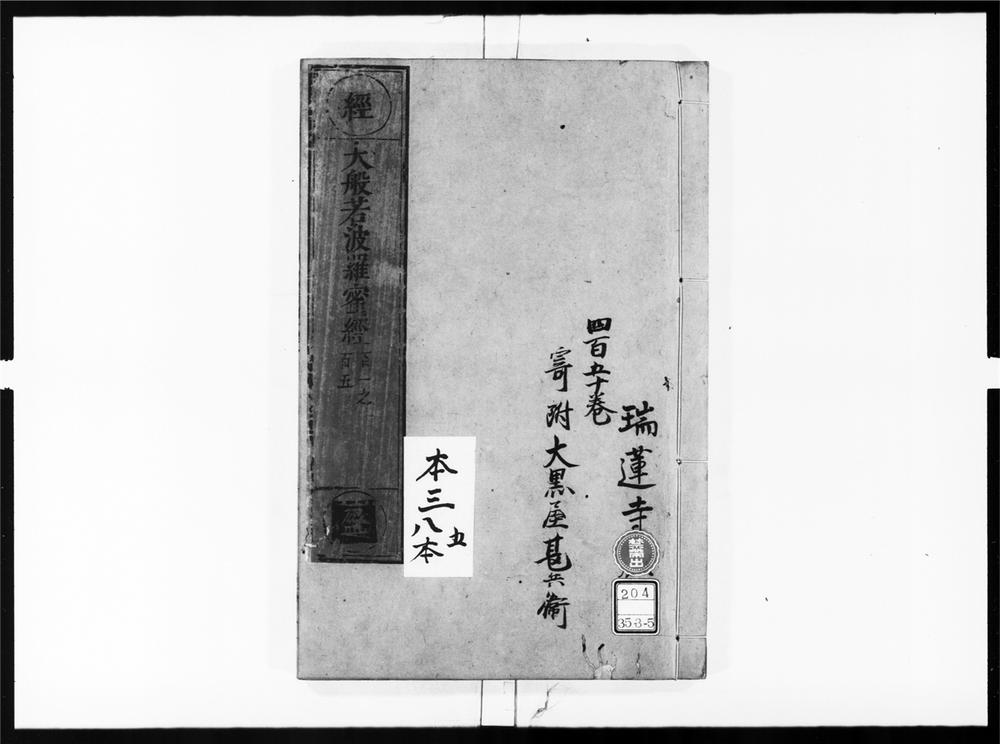 經
大般若波羅蜜經
百五
四百五十巻
寄附大黒屋甚兵衛
瑞蓮寺
本三八本
五
禁帯出
204
358-5